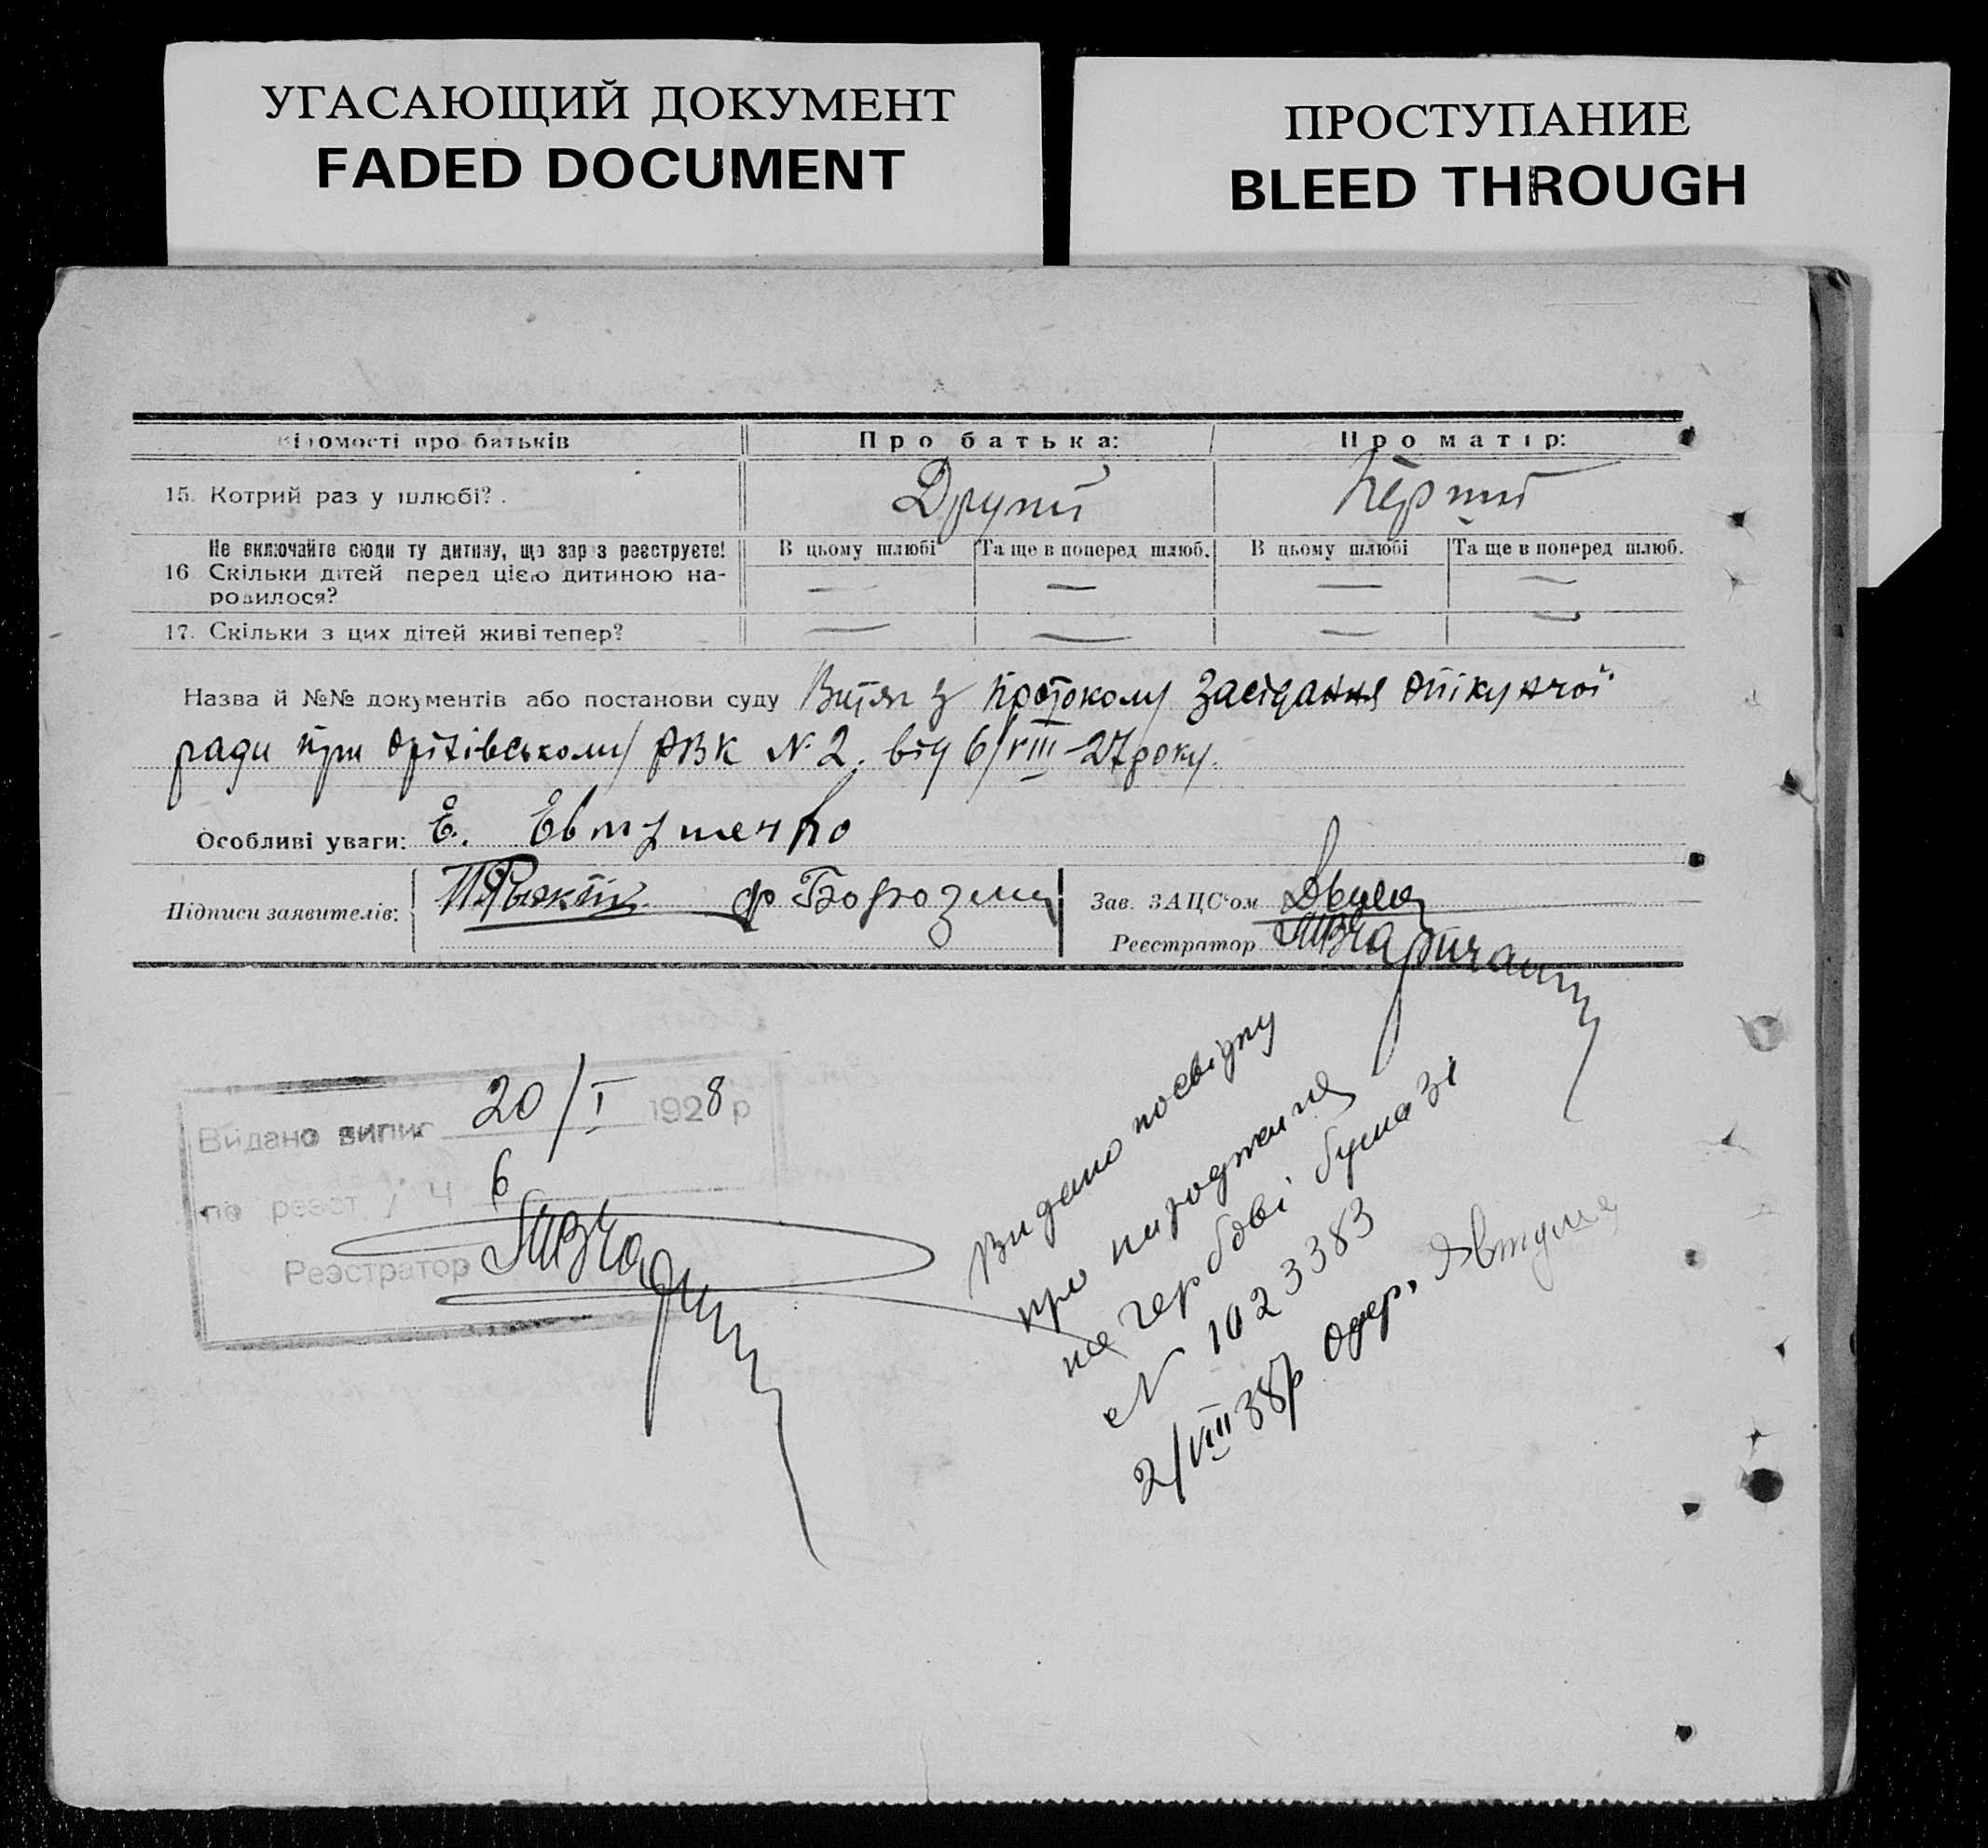 УГАСАЮЩИЙ ДОКУМЕНТ
FADED DOCUMENT
ПРОСТУПАНИЕ
BLEED THROUGH
ідомості про батьків Про батька: Про матір:
15. Котрий раз у шлюбі? Другий Перший
Не включайте сюди ту дитину, що зараз реєструєте! В цьому шлюбі Та ще в поперед шлюб. В цьому шлюбі Та ще в поперед шлюб.
16 Скільки дітей перед цією дитиною на- — — — —
родилося?
17. Скільки з цих дітей живі тепер? — — — —
Назва й №№ документів або постанови суду Витяг з протоколу засідання опікунчої
ради при Оріхівському РВК № 2. від 6/VIII-27 року.
Особливі уваги: Е.
Підписи заявителів: Зав. ЗАЦС'ом
Реєстратор
Видано випис 20/I 1928 р
по реєст / Ч 6
Реєстратор
Видано посвідку
про народження
на гербові бумазі
N 1023383
2/VIII 38р Одер.